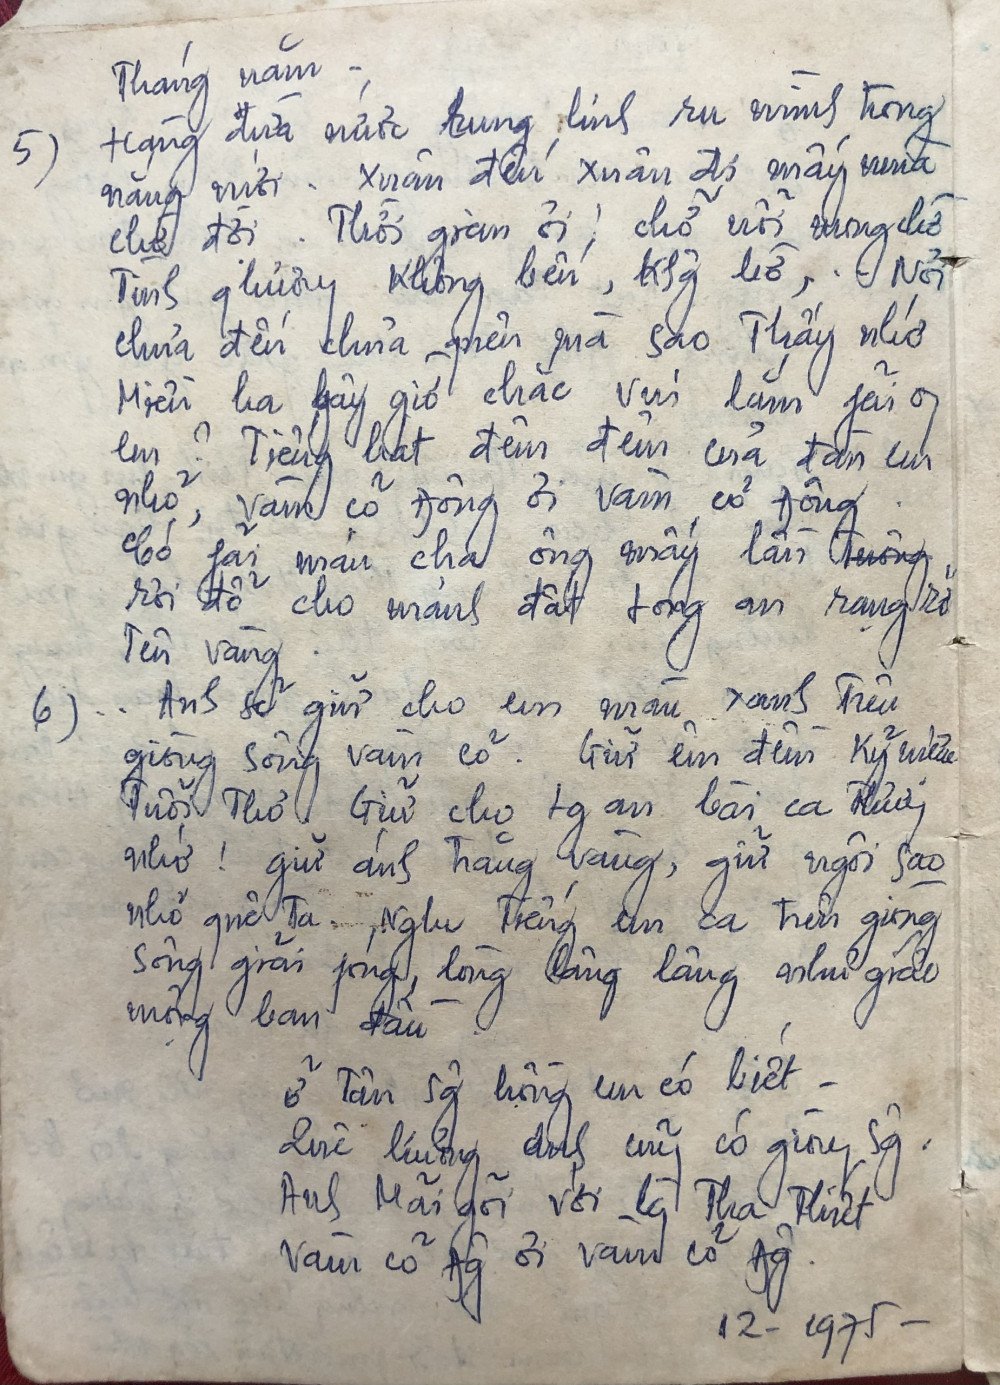 Tháng năm -,
5) Hàng dừa nước rung rinh ru mình trong
nắng mới. Xuân đến xuân đi mấy mùa
chờ đợi. Thời gian ơi! chở nỗi mong chờ
Tình thương không bến, không bờ, .- Nơi
chưa đến chưa quen mà sao Thấy nhớ
Miền ba bây giờ chắc vui lắm fải o
em? Tiếng hát đêm đêm của đàn em
nhỏ, vàm cỏ Đông ơi vàm cỏ Đông.
Có fải máu cha ông mấy lần tuông
rơi đổ cho mảnh đất Long an rạng rỡ
Tên vàng.
6) .. Anh sẽ giữ cho em màu xanh Trên
giòng sông vàm cỏ. Giữ êm đềm kỷ niệm
Tuổi Thơ. Giữ cho Lg an bài ca Thương
nhớ! giữ ánh Trăng vàng, giữ ngôi sao
nhỏ quê Ta. Nghe Tiếng em ca trên giòng
Sông giải fóng, lòng lâng lâng như giấc
mộng ban đầu.
Ở Tận sg hồng em có biết -
Quê hương anh cũg có giòng sg.
Anh Mãi gọi với lg Tha Thiết
Vàm cỏ Đg ơi vàm cỏ Đg.
12 - 1975 -